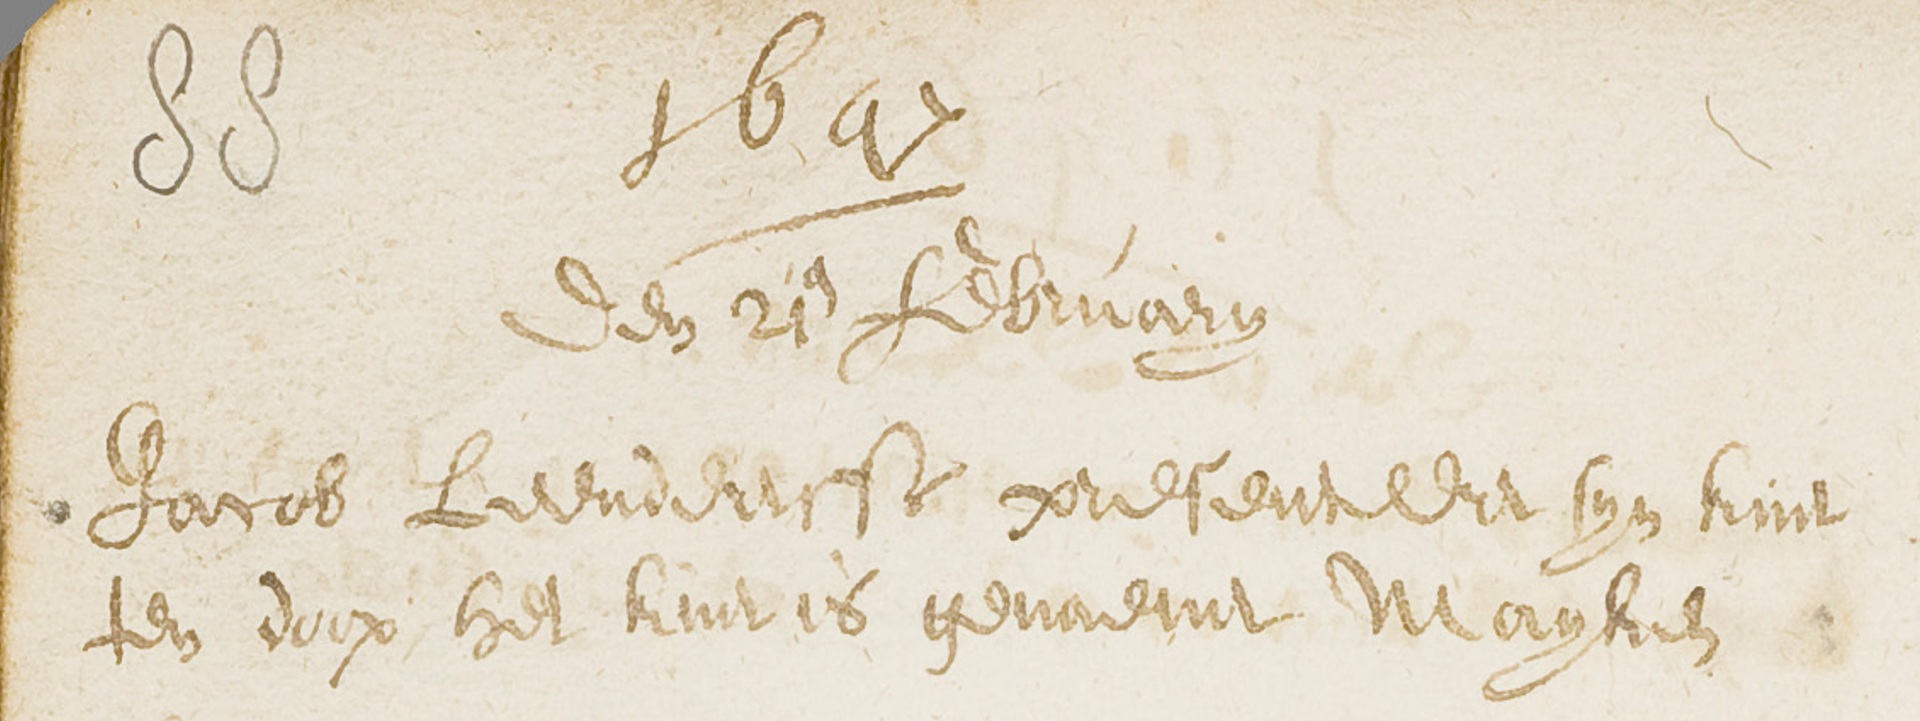 88
169
Den 21 february
Jacob Leendertsse presenteerder syn kint
ten doop het kint is genaemt Mayken